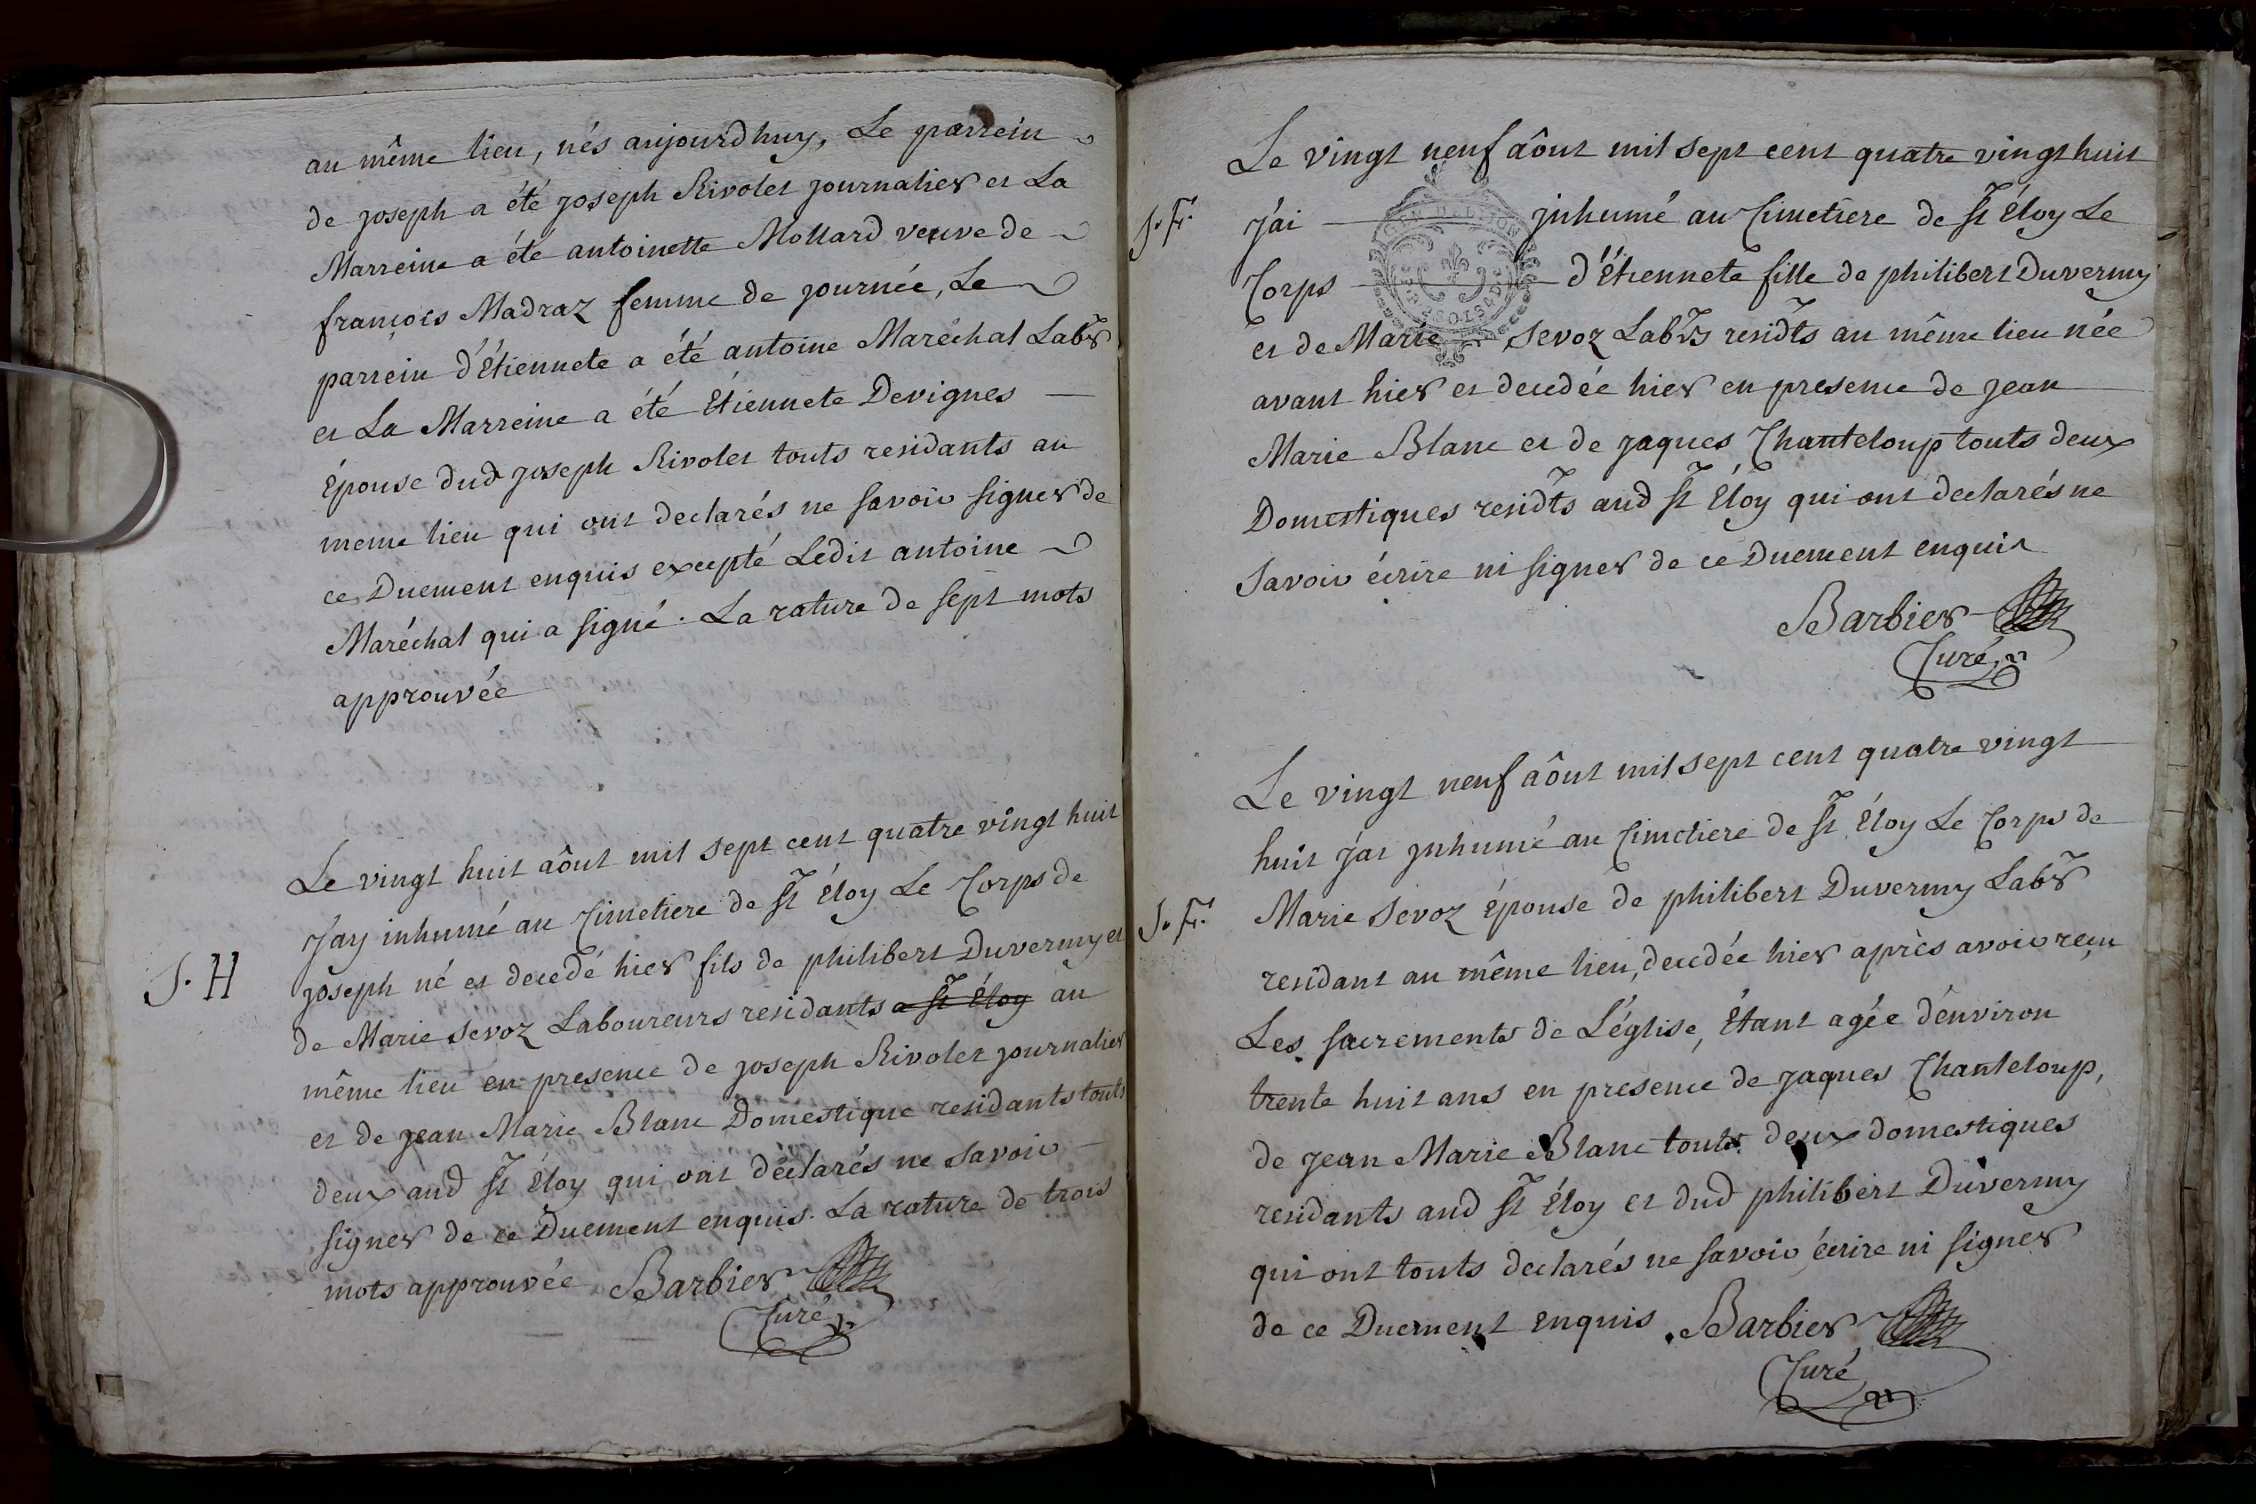 au même lieu, nés aujourdhuy, Le parrein
de joseph a été joseph Rivolet journalier et La
Marreine a été antoinette Mollard veuve de
françois Madraz femme de journée, Le
parrein d'Étiennete a été antoine Maréchal Labr
et La Marreine a été Étiennete Devignes
Épouse dud joseph Rivolet touts residants au
meme lieu qui ont declarés ne savoir signer de
ce Duement enquis excepté Ledit antoine
Maréchal qui a signé. La rature de sept mots
approuvée
Le vingt huit aôut mil sept cent quatre vingt huit
J'ay inhumé au Cimetiere de St Éloy Le Corps de
S. H
joseph né et decedé hier fils de philibert Duvermy et
de Marie Sevoz Laboureurs residants a St Éloy au
même lieu en presence de joseph Rivolet journalier
et de jean Marie Blanc Domestique residants touts
deux aud St Éloy qui ont déclarés ne savoir
signer de ce Duement enquis. La rature de trois
mots approuvée Barbier
Curé
Le vingt neuf aôut mil sept cent quatre vingt huit
S. F.
J'ai jnhumé au Cimetiere de St Éloy Le
Corps d'Étiennete fille de philibert Duvermy
et de Marie Sevoz Labrs residts au même lieu née
avant hier et decedée hier en presence de jean
Marie Blanc et de jaques Chanteloup touts deux
Domestiques residts aud St Éloy qui ont declarés ne
savoir écrire ni signer de ce Duement enquis
Barbier
Curé
Le vingt neuf aôut mil sept cent quatre vingt
huit J'ai jnhumé au Cimetiere de St Éloy Le Corps de
S. F.
Marie Sevoz Épouse de philibert Duvermy Labr
residant au même lieu, decedée hier après avoir reçu
Les sacrements de L'église, Étant agée d'environ
trente huit ans en presence de jaques Chanteloup,
de jean Marie Blanc touts deux domestiques
residants aud St Éloy et dud philibert Duvermy
qui ont touts declarés ne savoir écrire ni signer
de ce Duement enquis Barbier
Curé